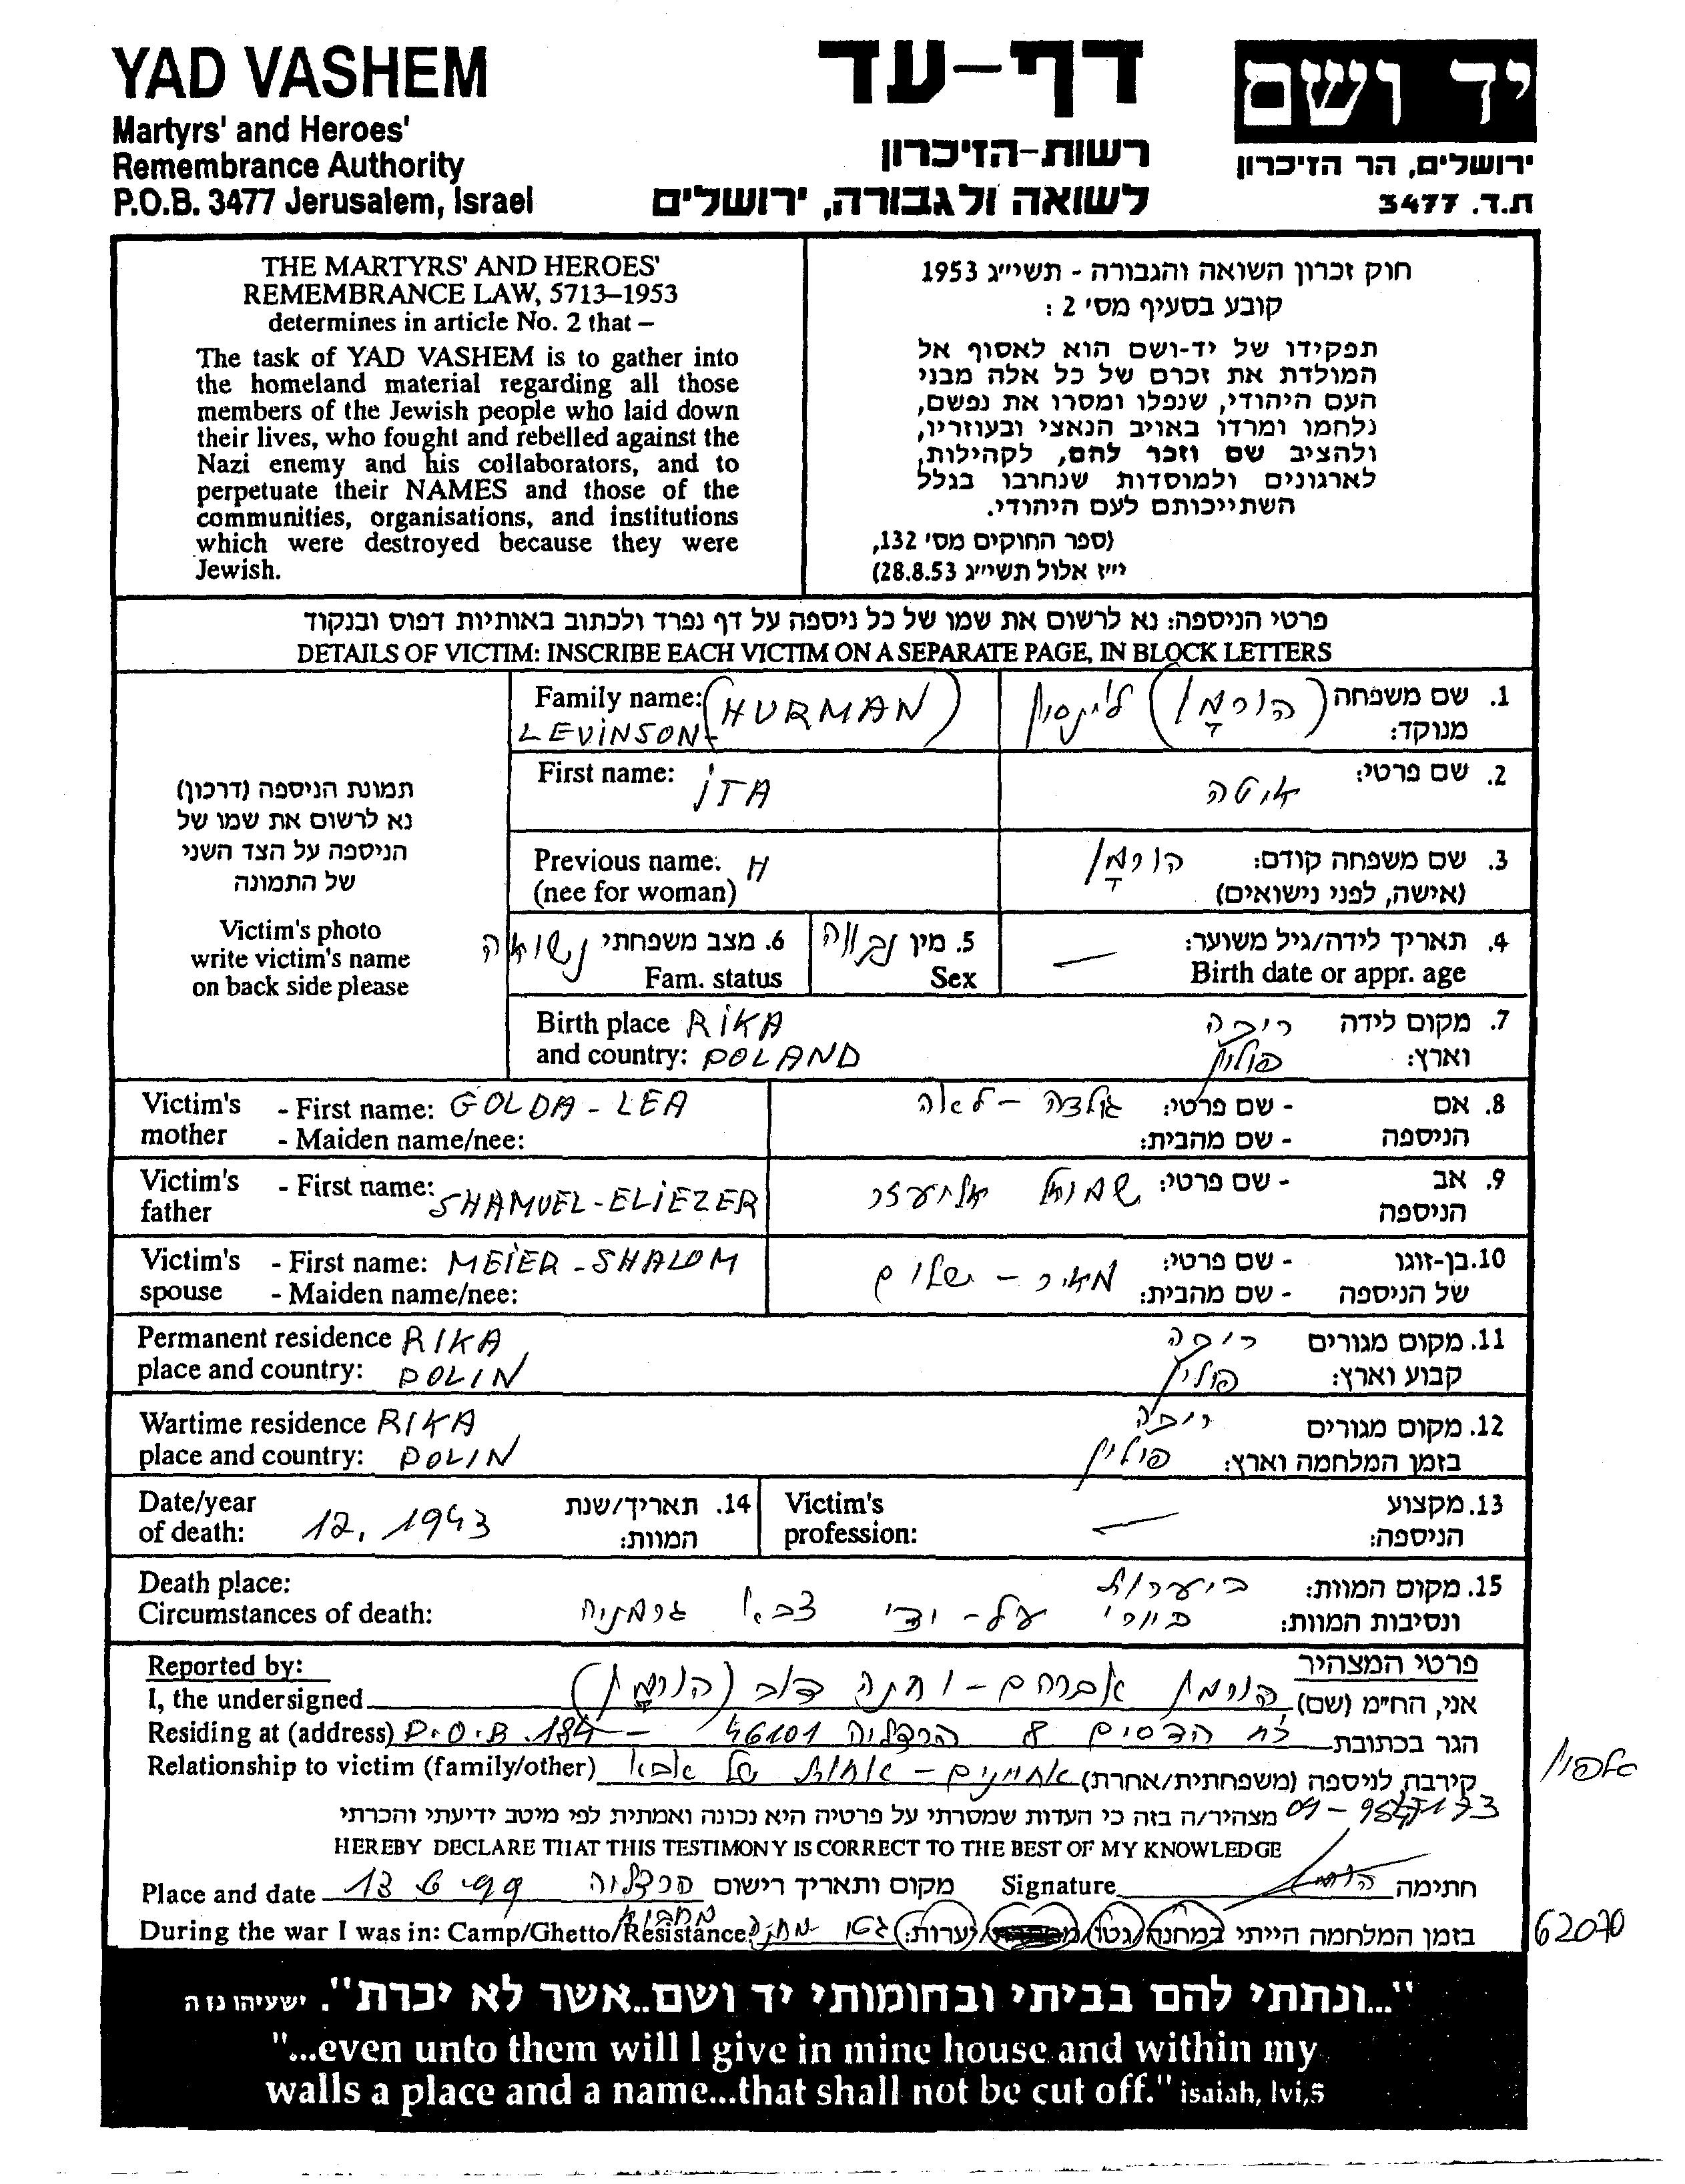 YAD VASHEM
Martyrs' and Heroes'
Remembrance Authority
P.O.B. 3477 Jerusalem, Israel
דף-עד
רשות-הזיכרון
לשואה ולגבורה, ירושלים
יד ושם
ירושלים, הר הזיכרון
ת.ד. 3477
THE MARTYRS' AND HEROES'
REMEMBRANCE LAW, 5713–1953
determines in article No. 2 that –
The task of YAD VASHEM is to gather into
the homeland material regarding all those
members of the Jewish people who laid down
their lives, who fought and rebelled against the
Nazi enemy and his collaborators, and to
perpetuate their NAMES and those of the
communities, organisations, and institutions
which were destroyed because they were
Jewish.
חוק זכרון השואה והגבורה - תשי״ג 1953
קובע בסעיף מס׳ 2 :
תפקידו של יד-ושם הוא לאסוף אל
המולדת את זכרם של כל אלה מבני
העם היהודי, שנפלו ומסרו את נפשם,
נלחמו ומרדו באויב הנאצי ובעוזריו,
ולהציב שם וזכר להם, לקהילות,
לארגונים ולמוסדות שנחרבו בגלל
השתייכותם לעם היהודי.
(ספר החוקים מס׳ 132,
י״ז אלול תשי״ג 28.8.53)
פרטי הניספה: נא לרשום את שמו של כל ניספה על דף נפרד ולכתוב באותיות דפוס ובנקוד
DETAILS OF VICTIM: INSCRIBE EACH VICTIM ON A SEPARATE PAGE, IN BLOCK LETTERS
תמונת הניספה (דרכון)
נא לרשום את שמו של
הניספה על הצד השני
של התמונה
Victim's photo
write victim's name
on back side please
Family name: (HURMAN)
LEVINSON-
1. שם משפחה (הורמָן) לוינסון
מנוקד:
First name: ITA
2. שם פרטי: איטה
Previous name. H
(nee for woman)
3. שם משפחה קודם: הורמָן
(אישה, לפני נישואים)
4. תאריך לידה/גיל משוער: —
Birth date or appr. age
5. מין נקבה
Sex
6. מצב משפחתי נשואה
Fam. status
Birth place RIKA
and country: POLAND
7. מקום לידה ריכה
וארץ: פולין
Victim's mother - First name: GOLDA - LEA
- Maiden name/nee:
8. אם הניספה - שם פרטי: גולדה - לאה
- שם מהבית:
Victim's father - First name: SHAMUEL - ELIEZER
9. אב הניספה - שם פרטי: שמואל אליעזר
Victim's spouse - First name: MEIER - SHALOM
- Maiden name/nee:
10. בן-זוגו של הניספה - שם פרטי: מאיר - שלום
- שם מהבית:
Permanent residence RIKA
place and country: POLIN
11. מקום מגורים ריכה
קבוע וארץ: פולין
Wartime residence RIKA
place and country: POLIN
12. מקום מגורים ריכה
בזמן המלחמה וארץ: פולין
Date/year
of death: 12. 1943
14. תאריך/שנת
המוות:
Victim's
profession:
13. מקצוע
הניספה: —
Death place:
Circumstances of death:
15. מקום המוות: ביערות
ונסיבות המוות: על - ידי צבא גרמניה
Reported by:
פרטי המצהיר
I, the undersigned
אני, הח״מ (שם) הורמן אברהם - וחנה דוב (הורמָן)
Residing at (address) P.O.B. 184 -
הגר בכתובת כח הדסים 8 הרצליה 46101
Relationship to victim (family/other)
קירבה לניספה (משפחתית/אחרת) אחיינים - אחות של אבא
טלפון
09 - 9547173
מצהיר/ה בזה כי העדות שמסרתי על פרטיה היא נכונה ואמתית לפי מיטב ידיעתי והכרתי
HEREBY DECLARE THAT THIS TESTIMONY IS CORRECT TO THE BEST OF MY KNOWLEDGE
Place and date 13 6 99 הרצליה מקום ותאריך רישום
Signature חתימה
During the war I was in: Camp/Ghetto/Resistance
בזמן המלחמה הייתי במחנה/גטו/יערות: גטו מחנה
62070
"...ונתתי להם בביתי ובחומותי יד ושם..אשר לא יכרת". ישעיהו נו ה
"...even unto them will I give in mine house and within my
walls a place and a name...that shall not be cut off." isaiah, lvi,5